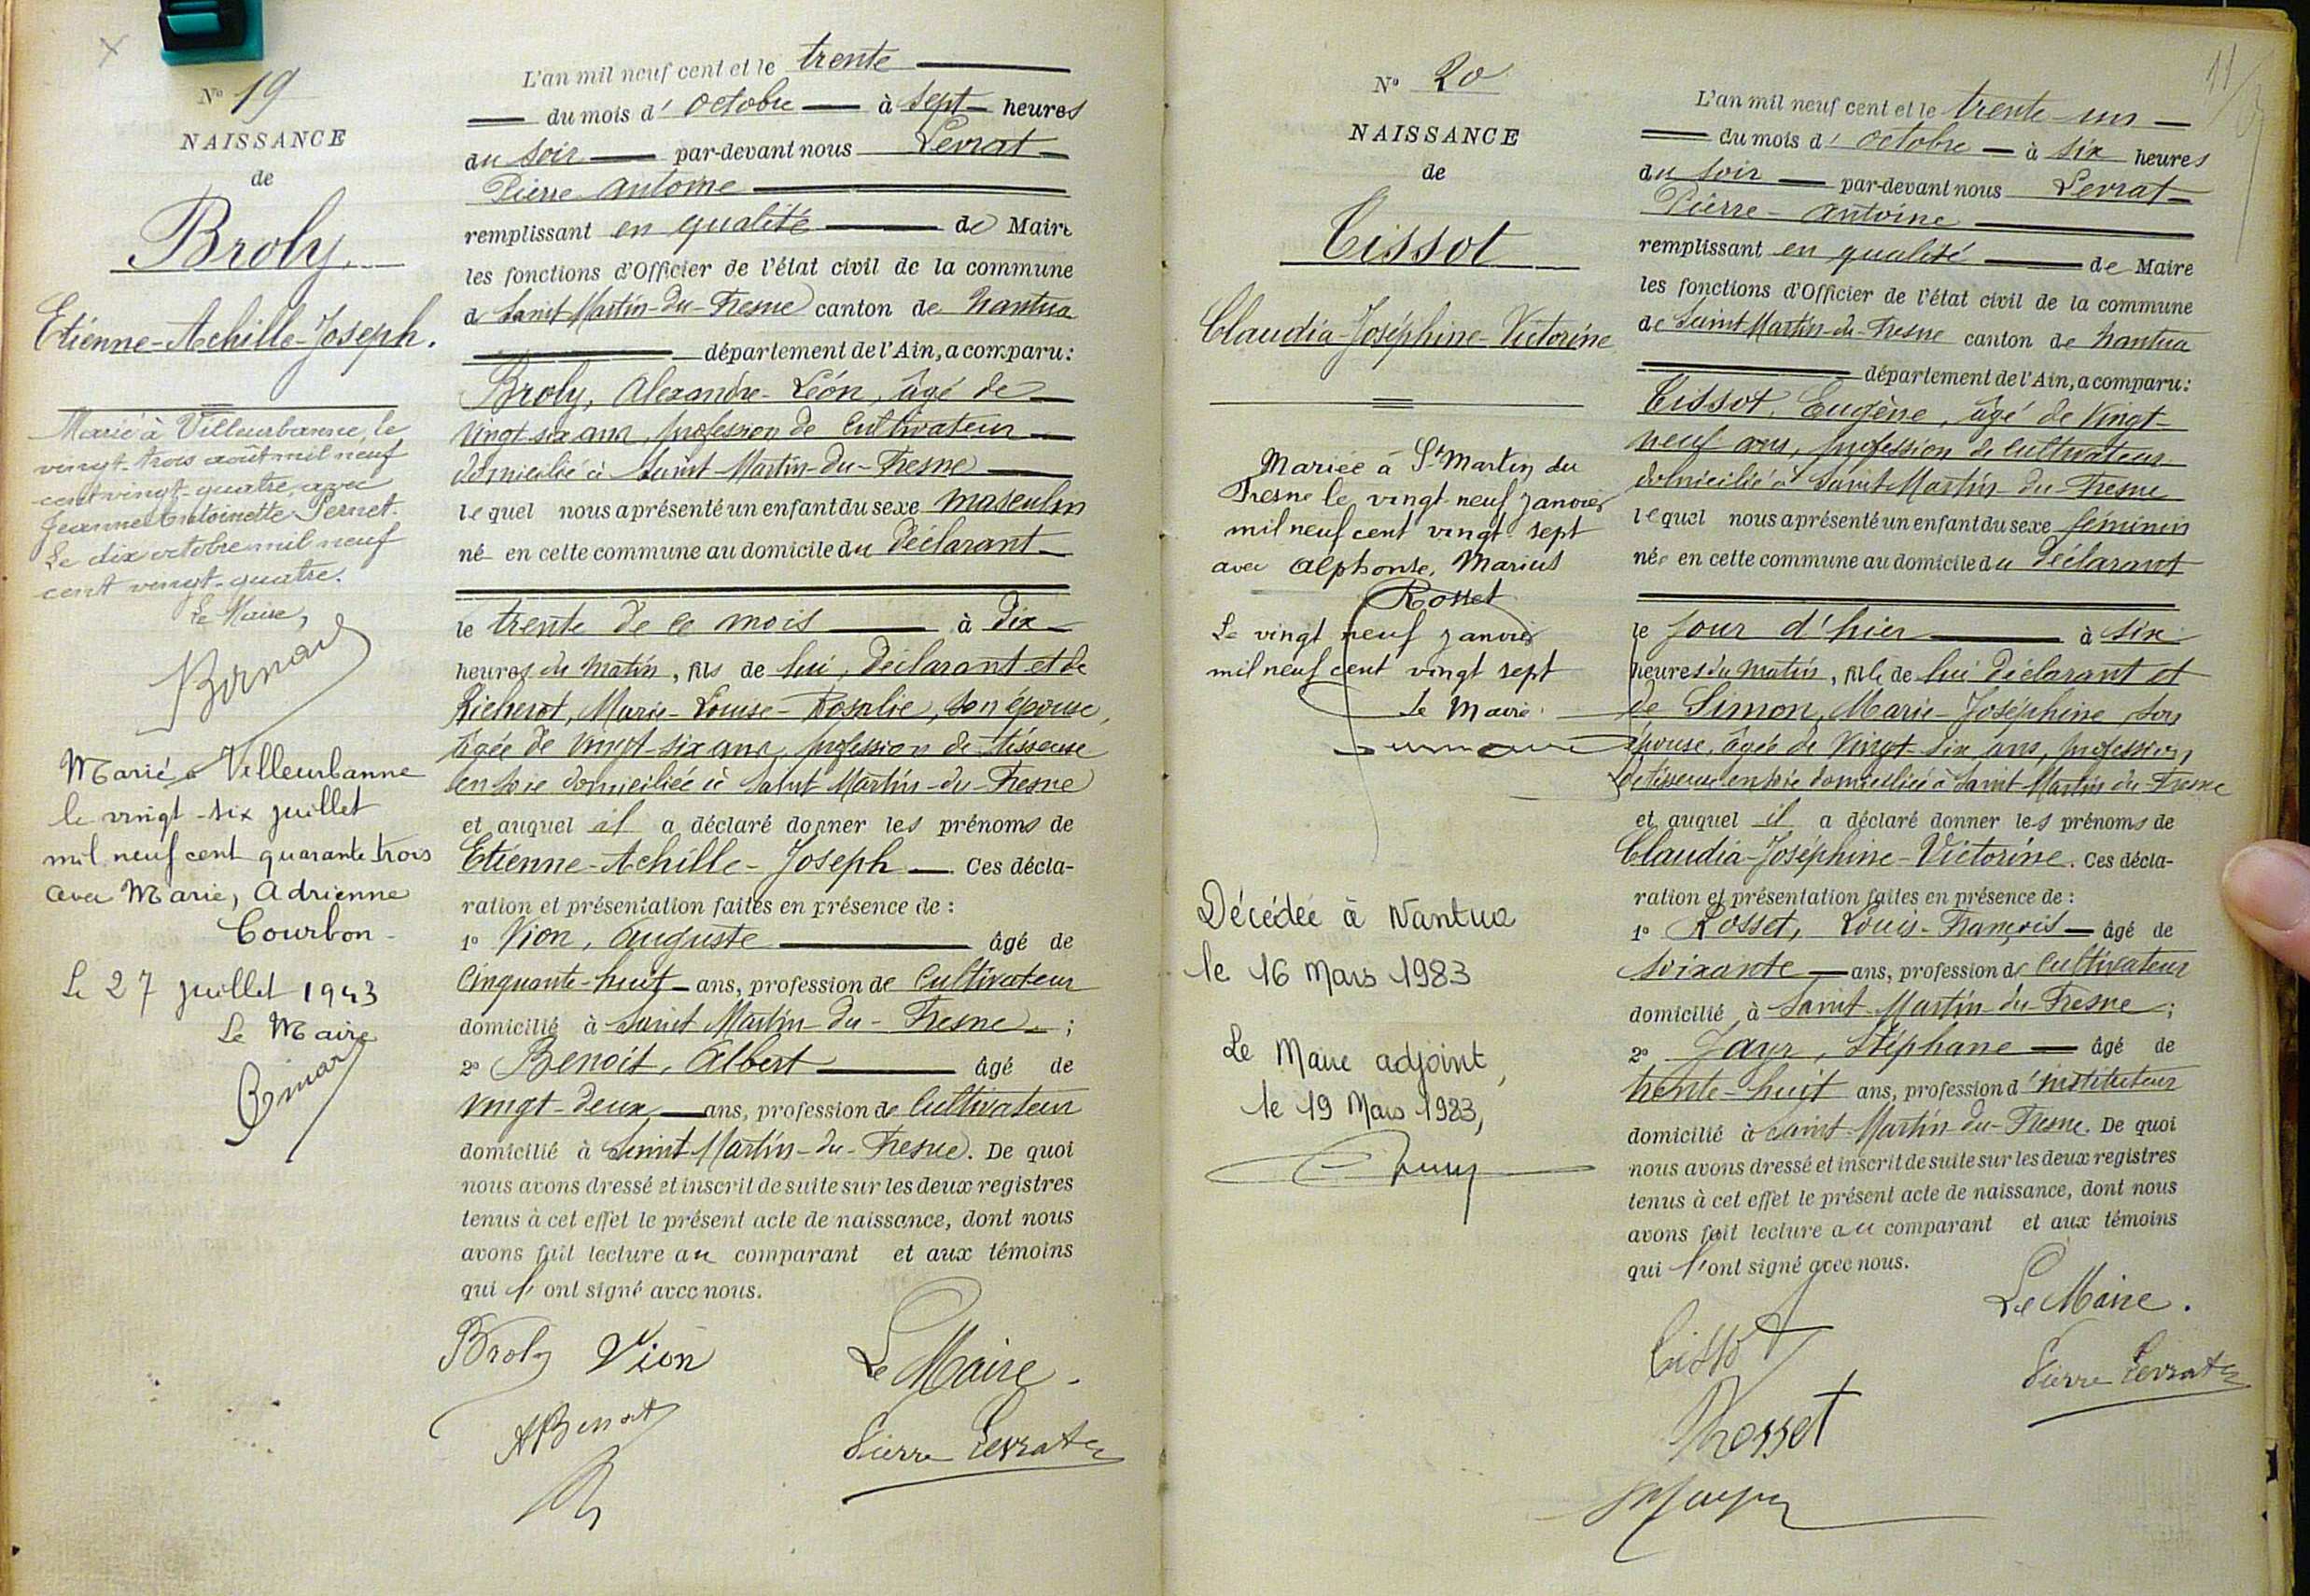 N° 19
NAISSANCE
de
Broly
Etienne-Achille-Joseph.
Marié à Villeurbanne, le
vingt-trois août mil neuf
cent vingt-quatre, avec
Jeanne Antoinette Pernet.
Le dix octobre mil neuf
cent vingt-quatre.
Le Maire,
Marié à Villeurbanne
le vingt-six juillet
mil neuf cent quarante trois
avec Marie, Adrienne
Courbon
Le 27 juillet 1943
Le Maire
L'an mil neuf cent et le trente
du mois d'octobre à sept heures
du soir par-devant nous Levrat
Pierre Antoine
remplissant en qualité de Maire
les fonctions d'Officier de l'état civil de la commune
d Saint Martin-du-Fresne canton de Nantua
département de l'Ain, a comparu:
Broly, Alexandre-Léon, âgé de
vingt-six ans, profession de cultivateur
domicilié à Saint-Martin-du-Fresne
lequel nous a présenté un enfant du sexe masculin
né en cette commune au domicile du déclarant
le trente de ce mois à dix
heures du matin, fils de lui, déclarant et de
Richerot, Marie-Louise-Rosalie, son épouse,
âgée de vingt-six ans, profession de tisseuse
en soie domiciliée à Saint Martin-du-Fresne
et auquel il a déclaré donner les prénoms de
Etienne-Achille-Joseph. Ces décla-
ration et présentation faites en présence de :
1° Vion, Auguste âgé de
cinquante-huit ans, profession de cultivateur
domicilié à Saint Martin-du-Fresne ;
2° Benoit, Albert âgé de
vingt-deux ans, profession de cultivateur
domicilié à Saint-Martin-du-Fresne. De quoi
nous avons dressé et inscrit de suite sur les deux registres
tenus à cet effet le présent acte de naissance, dont nous
avons fait lecture au comparant et aux témoins
qui l'ont signé avec nous.
Broly Vion Le Maire.
ABenoit Pierre Levrat
11
N° 20
NAISSANCE
de
Tissot
Claudia-Joséphine-Victorine
Mariée à St Martin du
Fresne le vingt-neuf janvier
mil neuf cent vingt sept
avec Alphonse, Marius
Rosset
Le vingt neuf janvier
mil neuf cent vingt sept
Le Maire
Décédée à Nantua
le 16 Mars 1983
Le Maire adjoint,
le 19 Mars 1983,
L'an mil neuf cent et le trente-un
du mois d'octobre à six heures
du soir par-devant nous Levrat
Pierre-Antoine
remplissant en qualité de Maire
les fonctions d'Officier de l'état civil de la commune
de Saint Martin-du-Fresne canton de Nantua
département de l'Ain, a comparu:
Tissot, Eugène, âgé de vingt-
neuf ans, profession de cultivateur
domicilié à Saint-Martin-du-Fresne
lequel nous a présenté un enfant du sexe féminin
née en cette commune au domicile du déclarant
le jour d'hier à six
heures du matin, fille de lui déclarant et
de Simon, Marie-Joséphine son
épouse, âgée de vingt-six ans, profession,
de tisseuse en soie domiciliée à Saint Martin du Fresne
et auquel il a déclaré donner les prénoms de
Claudia-Joséphine-Victorine. Ces décla-
ration et présentation faites en présence de :
1° Rosset, Louis-François âgé de
soixante ans, profession de cultivateur
domicilié à Saint-Martin-du-Fresne ;
2° Jayr, Stéphane âgé de
trente-huit ans, profession d'instituteur
domicilié à Saint-Martin-du-Fresne. De quoi
nous avons dressé et inscrit de suite sur les deux registres
tenus à cet effet le présent acte de naissance, dont nous
avons fait lecture au comparant et aux témoins
qui l'ont signé avec nous.
Le Maire.
Tissot Pierre Levrat
Rosset